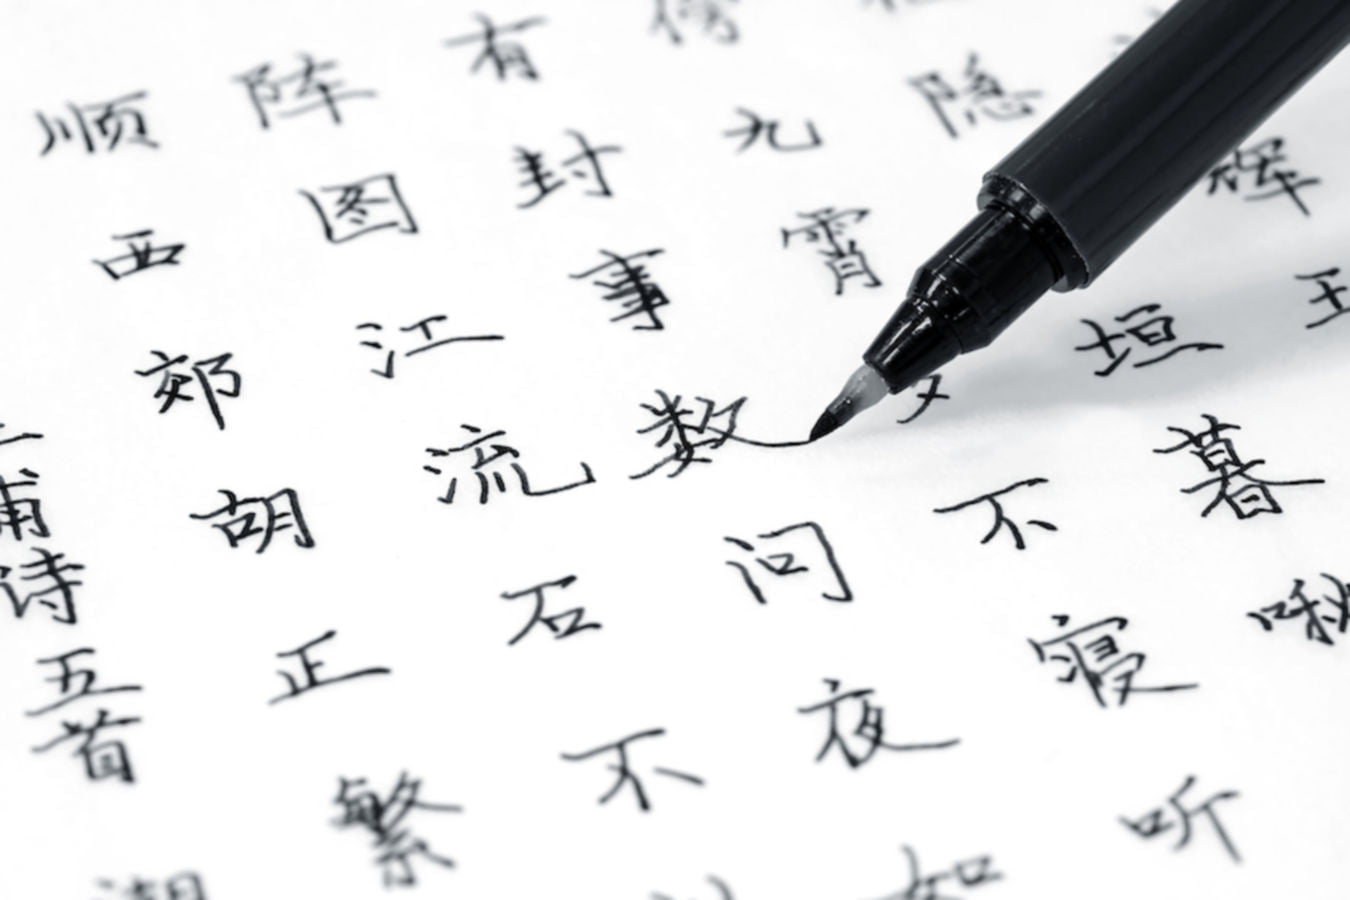 辉
隐垣暮啾
傍九霄不寝听
有封事数问夜如
阵图江流石不
顺西郊胡正繁
甫诗五首